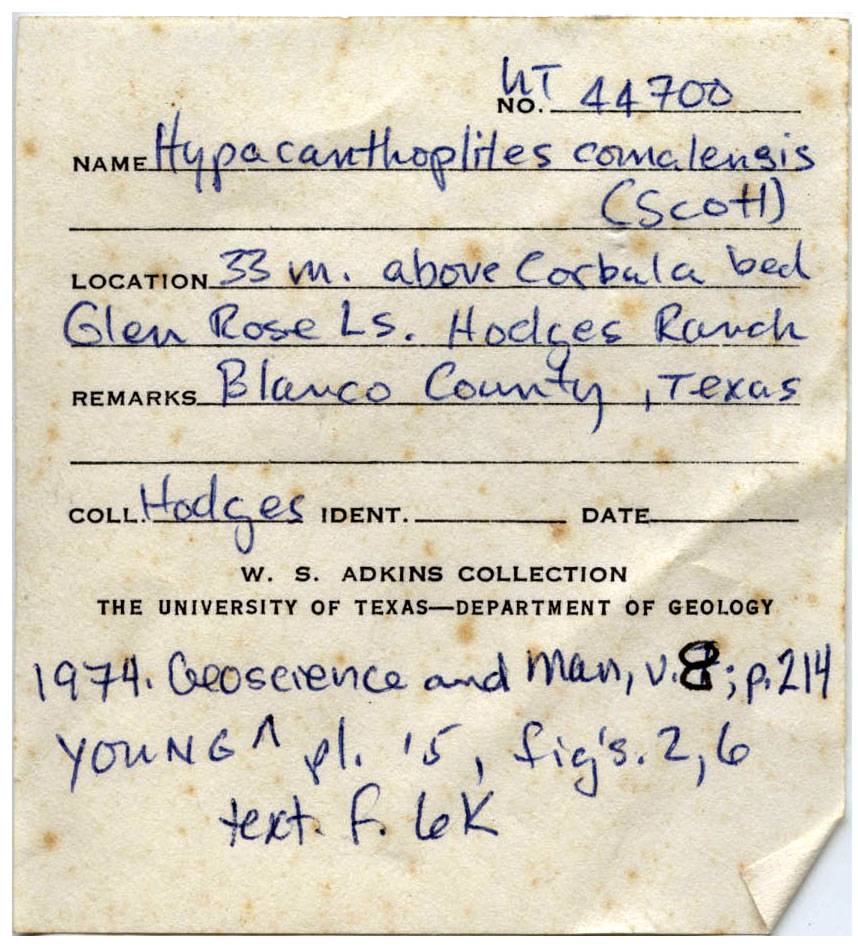 UT
NO. 44700
NAME Hypacanthoplites comalensis
(Scott)
LOCATION 33 m. above Corbula bed
Glen Rose Ls. Hodges Ranch
REMARKS Blanco County, Texas
COLL. Hodges IDENT. DATE
W. S. ADKINS COLLECTION
THE UNIVERSITY OF TEXAS—DEPARTMENT OF GEOLOGY
1974. Geoscience and Man, v.8; p.214
YOUNG ^ pl. 15, fig's. 2, 6
text. f. 6K